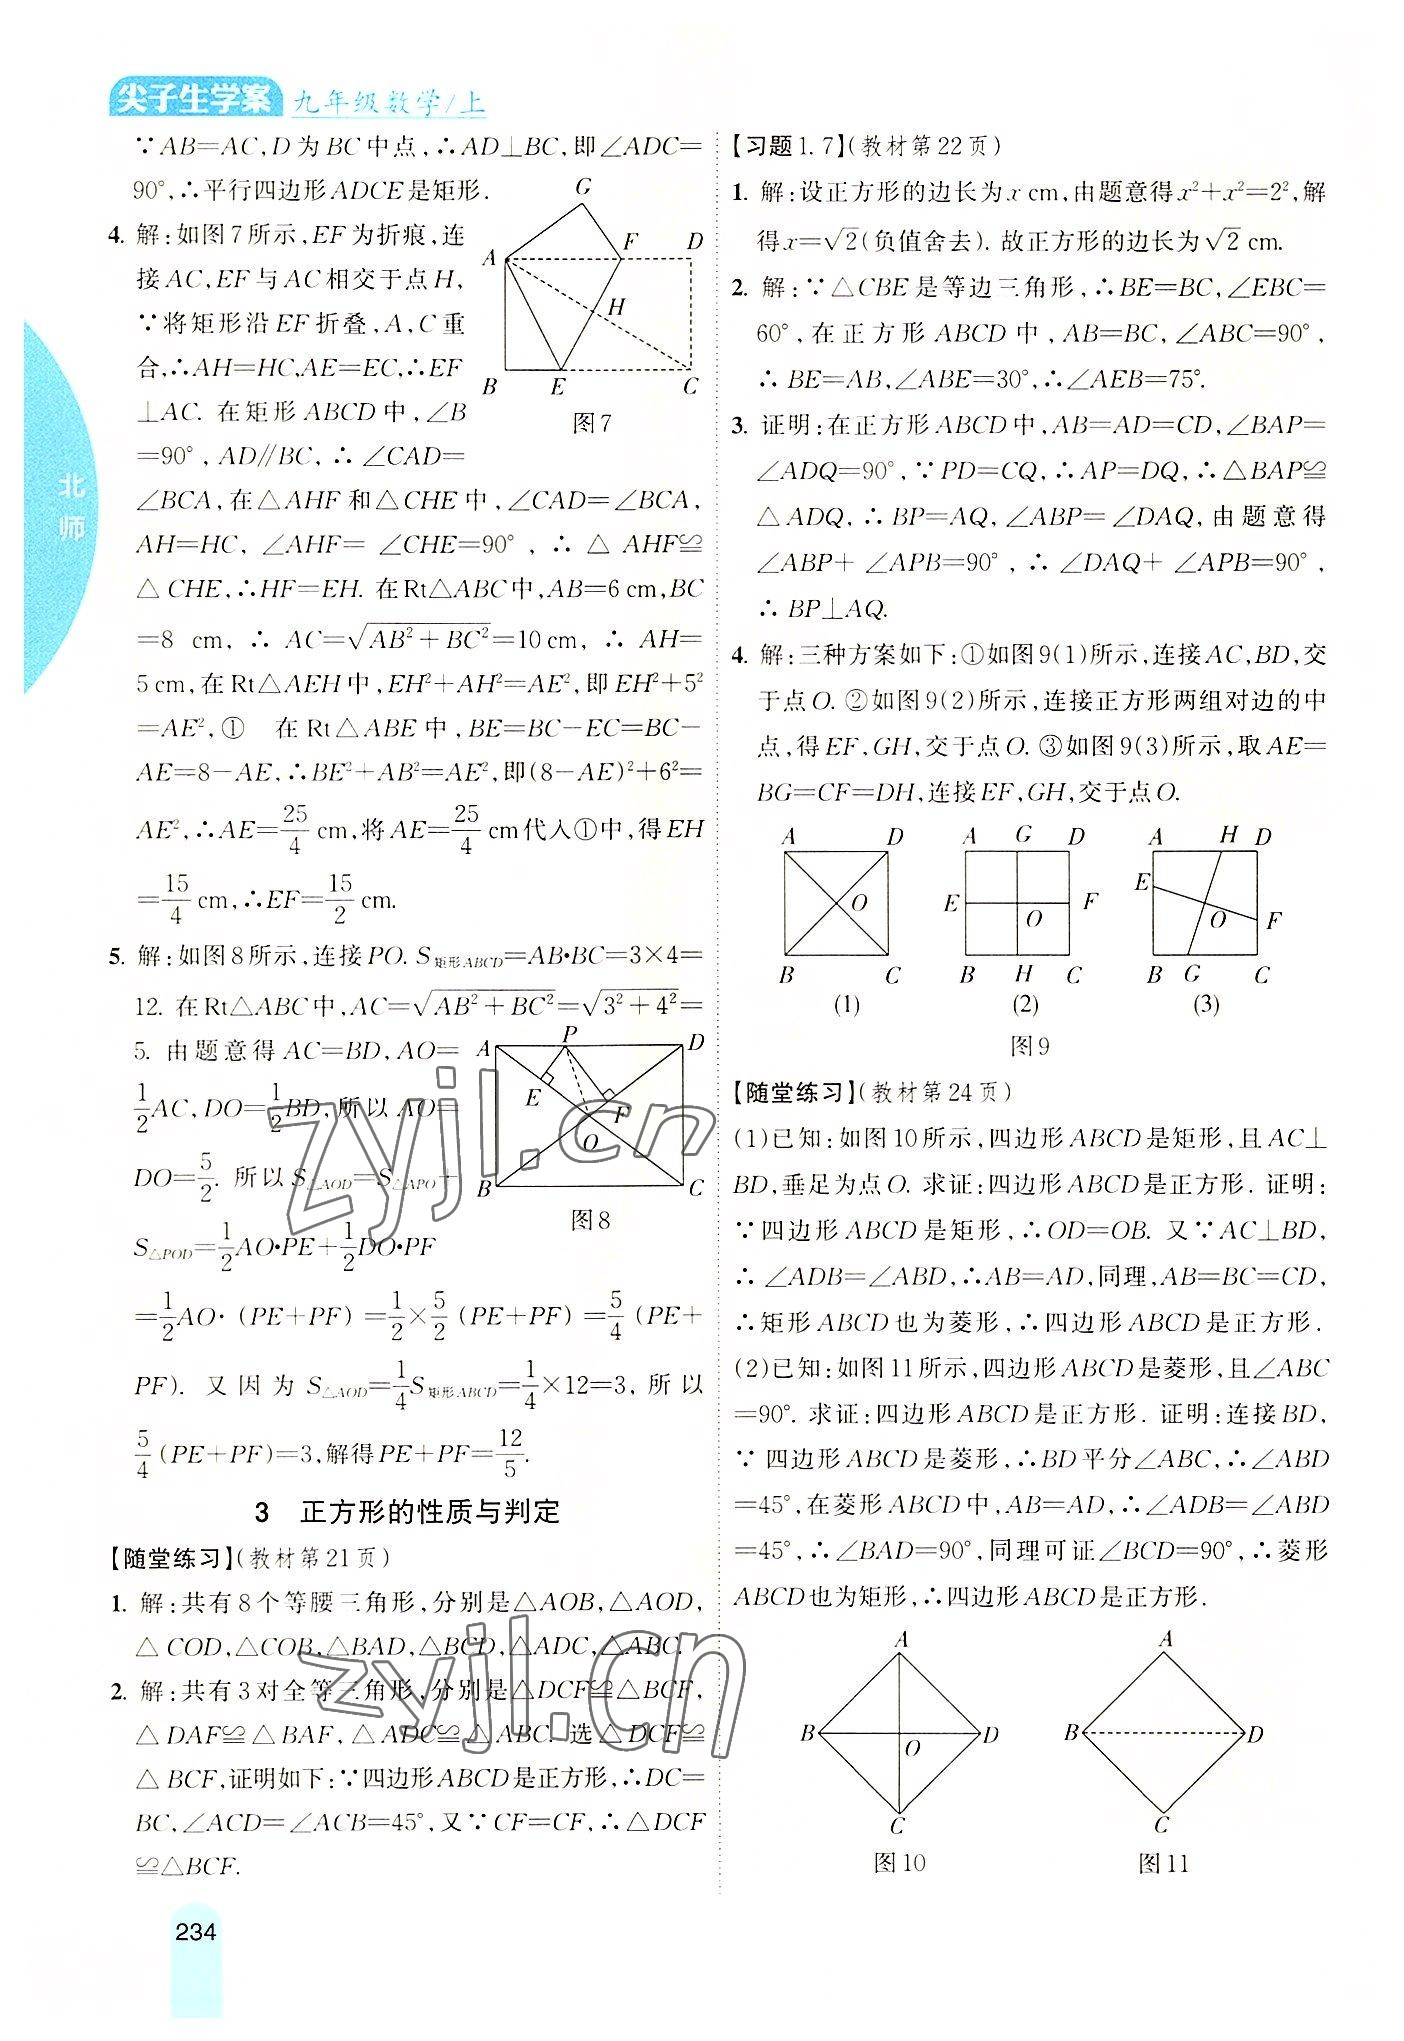 尖子生学案 九年级数学/上
∵AB=AC,D为BC中点,∴AD⊥BC,即∠ADC=
90°,∴平行四边形ADCE是矩形.
4. 解:如图7所示,EF为折痕,连
接AC,EF与AC相交于点H,
∵将矩形沿EF折叠,A,C重
合,∴AH=HC,AE=EC,∴EF
⊥AC. 在矩形ABCD中,∠B
=90°,AD∥BC,∴∠CAD=
G
A
F
D
H
B
E
C
图7
∠BCA,在△AHF和△CHE中,∠CAD=∠BCA,
AH=HC,∠AHF=∠CHE=90°,∴△AHF≌
△CHE,∴HF=EH. 在Rt△ABC中,AB=6 cm,BC
=8 cm,∴AC=√(AB²+BC²)=10 cm,∴AH=
5 cm,在Rt△AEH中,EH²+AH²=AE²,即EH²+5²
=AE²,① 在Rt△ABE中,BE=BC-EC=BC-
AE=8-AE,∴BE²+AB²=AE²,即(8-AE)²+6²=
AE²,∴AE=25/4 cm,将AE=25/4 cm代入①中,得EH
=15/4 cm,∴EF=15/2 cm.
5. 解:如图8所示,连接PO. S矩形ABCD=AB·BC=3×4=
12. 在Rt△ABC中,AC=√(AB²+BC²)=√(3²+4²)=
5. 由题意得AC=BD,AO=
1/2AC,DO=1/2BD,所以AO=
DO=5/2. 所以S△AOD=S△APO+
S△POD=1/2AO·PE+1/2DO·PF
A
P
D
E
F
O
B
C
图8
=1/2AO·(PE+PF)=1/2×5/2(PE+PF)=5/4(PE+
PF). 又因为S△AOD=1/4S矩形ABCD=1/4×12=3,所以
5/4(PE+PF)=3,解得PE+PF=12/5.
3 正方形的性质与判定
【随堂练习】(教材第21页)
1. 解:共有8个等腰三角形,分别是△AOB,△AOD,
△COD,△COB,△BAD,△BCD,△ADC,△ABC.
2. 解:共有3对全等三角形,分别是△DCF≌△BCF,
△DAF≌△BAF,△ADC≌△ABC. 选△DCF≌
△BCF,证明如下:∵四边形ABCD是正方形,∴DC=
BC,∠ACD=∠ACB=45°,又∵CF=CF,∴△DCF
≌△BCF.
【习题1.7】(教材第22页)
1. 解:设正方形的边长为x cm,由题意得x²+x²=2²,解
得x=√2(负值舍去). 故正方形的边长为√2 cm.
2. 解:∵△CBE是等边三角形,∴BE=BC,∠EBC=
60°,在正方形ABCD中,AB=BC,∠ABC=90°,
∴BE=AB,∠ABE=30°,∴∠AEB=75°.
3. 证明:在正方形ABCD中,AB=AD=CD,∠BAP=
∠ADQ=90°,∵PD=CQ,∴AP=DQ,∴△BAP≌
△ADQ,∴BP=AQ,∠ABP=∠DAQ,由题意得
∠ABP+∠APB=90°,∴∠DAQ+∠APB=90°,
∴BP⊥AQ.
4. 解:三种方案如下:①如图9(1)所示,连接AC,BD,交
于点O. ②如图9(2)所示,连接正方形两组对边的中
点,得EF,GH,交于点O. ③如图9(3)所示,取AE=
BG=CF=DH,连接EF,GH,交于点O.
A D A G D A H D
O E O F E O F
B C B H C B G C
(1) (2) (3)
图9
【随堂练习】(教材第24页)
(1)已知:如图10所示,四边形ABCD是矩形,且AC⊥
BD,垂足为点O. 求证:四边形ABCD是正方形. 证明:
∵四边形ABCD是矩形,∴OD=OB. 又∵AC⊥BD,
∴∠ADB=∠ABD,∴AB=AD,同理,AB=BC=CD,
∴矩形ABCD也为菱形,∴四边形ABCD是正方形.
(2)已知:如图11所示,四边形ABCD是菱形,且∠ABC
=90°. 求证:四边形ABCD是正方形. 证明:连接BD,
∵四边形ABCD是菱形,∴BD平分∠ABC,∴∠ABD
=45°,在菱形ABCD中,AB=AD,∴∠ADB=∠ABD
=45°,∴∠BAD=90°,同理可证∠BCD=90°,∴菱形
ABCD也为矩形,∴四边形ABCD是正方形.
A A
B O D B D
C C
图10 图11
北师
zyjl.cn
zyjl.cn
234